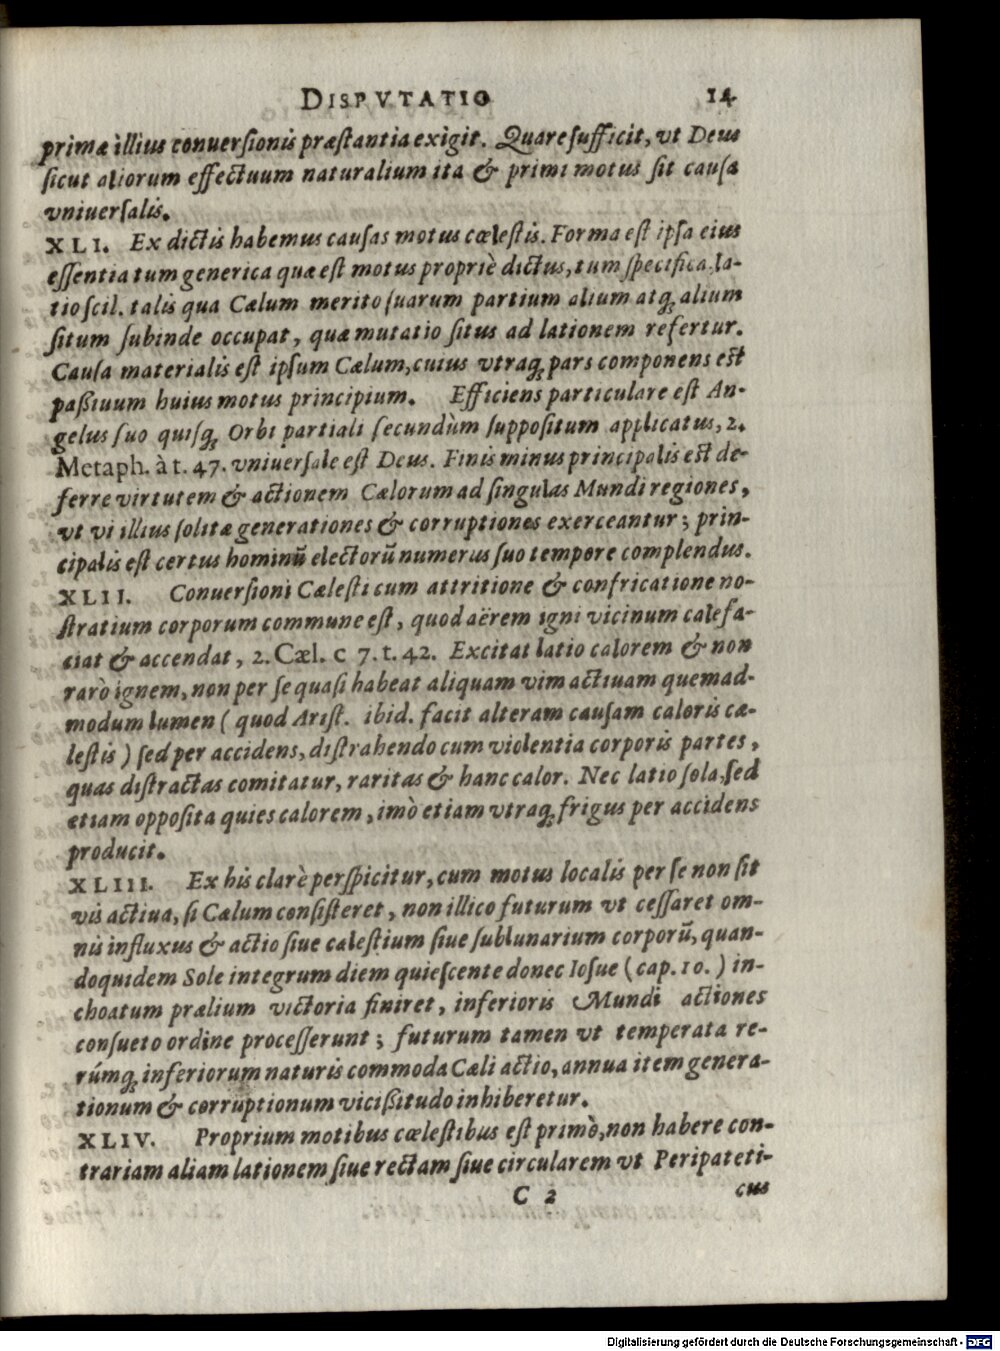 DISPVTATIO 14
primæ illius conuersionis præstantia exigit. Quare sufficit, vt Deus
sicut aliorum effectuum naturalium ita & primi motus sit causa
vniuersalis.
XLI. Ex dictis habemus causas motus cœlestis. Forma est ipsa eius
essentia tum generica quæ est motus propriè dictus, tum specifica, la-
tio scil. talis qua Cælum merito suarum partium alium atq; alium
situm subinde occupat, quæ mutatio situs ad lationem refertur.
Causa materialis est ipsum Cælum, cuius vtraq; pars componens est
paßiuum huius motus principium. Efficiens particulare est An-
gelus suo quisq; Orbi partiali secundùm suppositum applicatus, 2.
Metaph. à t. 47. vniuersale est Deus. Finis minus principalis est de-
ferre virtutem & actionem Cælorum ad singulas Mundi regiones,
vt vi illius solitæ generationes & corruptiones exerceantur; prin-
cipalis est certus hominũ electorũ numerus suo tempore complendus.
XLII. Conuersioni Cælesti cum attritione & confricatione no-
stratium corporum commune est, quod aërem igni vicinum calefa-
ciat & accendat, 2. Cæl. c 7. t. 42. Excitat latio calorem & non
rarò ignem, non per se quasi habeat aliquam vim actiuam quemad-
modum lumen ( quod Arist. ibid. facit alteram causam caloris cæ-
lestis ) sed per accidens, distrahendo cum violentia corporis partes,
quas distractas comitatur, raritas & hanc calor. Nec latio sola, sed
etiam opposita quies calorem, imò etiam vtraq; frigus per accidens
producit.
XLIII. Ex his clarè perspicitur, cum motus localis per se non sit
vis actiua, si Cælum consisteret, non illico futurum vt cessaret om-
nis influxus & actio siue cælestium siue sublunarium corporũ, quan-
doquidem Sole integrum diem quiescente donec Iosue ( cap. 10. ) in-
choatum prælium victoria finiret, inferioris Mundi actiones
consueto ordine processerunt; futurum tamen vt temperata re-
rúmq; inferiorum naturis commoda Cæli actio, annua item genera-
tionum & corruptionum vicißitudo inhiberetur.
XLIV. Proprium motibus cœlestibus est primò, non habere con-
trariam aliam lationem siue rectam siue circularem vt Peripateti-
C 2 cus
Digitalisierung gefördert durch die Deutsche Forschungsgemeinschaft - DFG